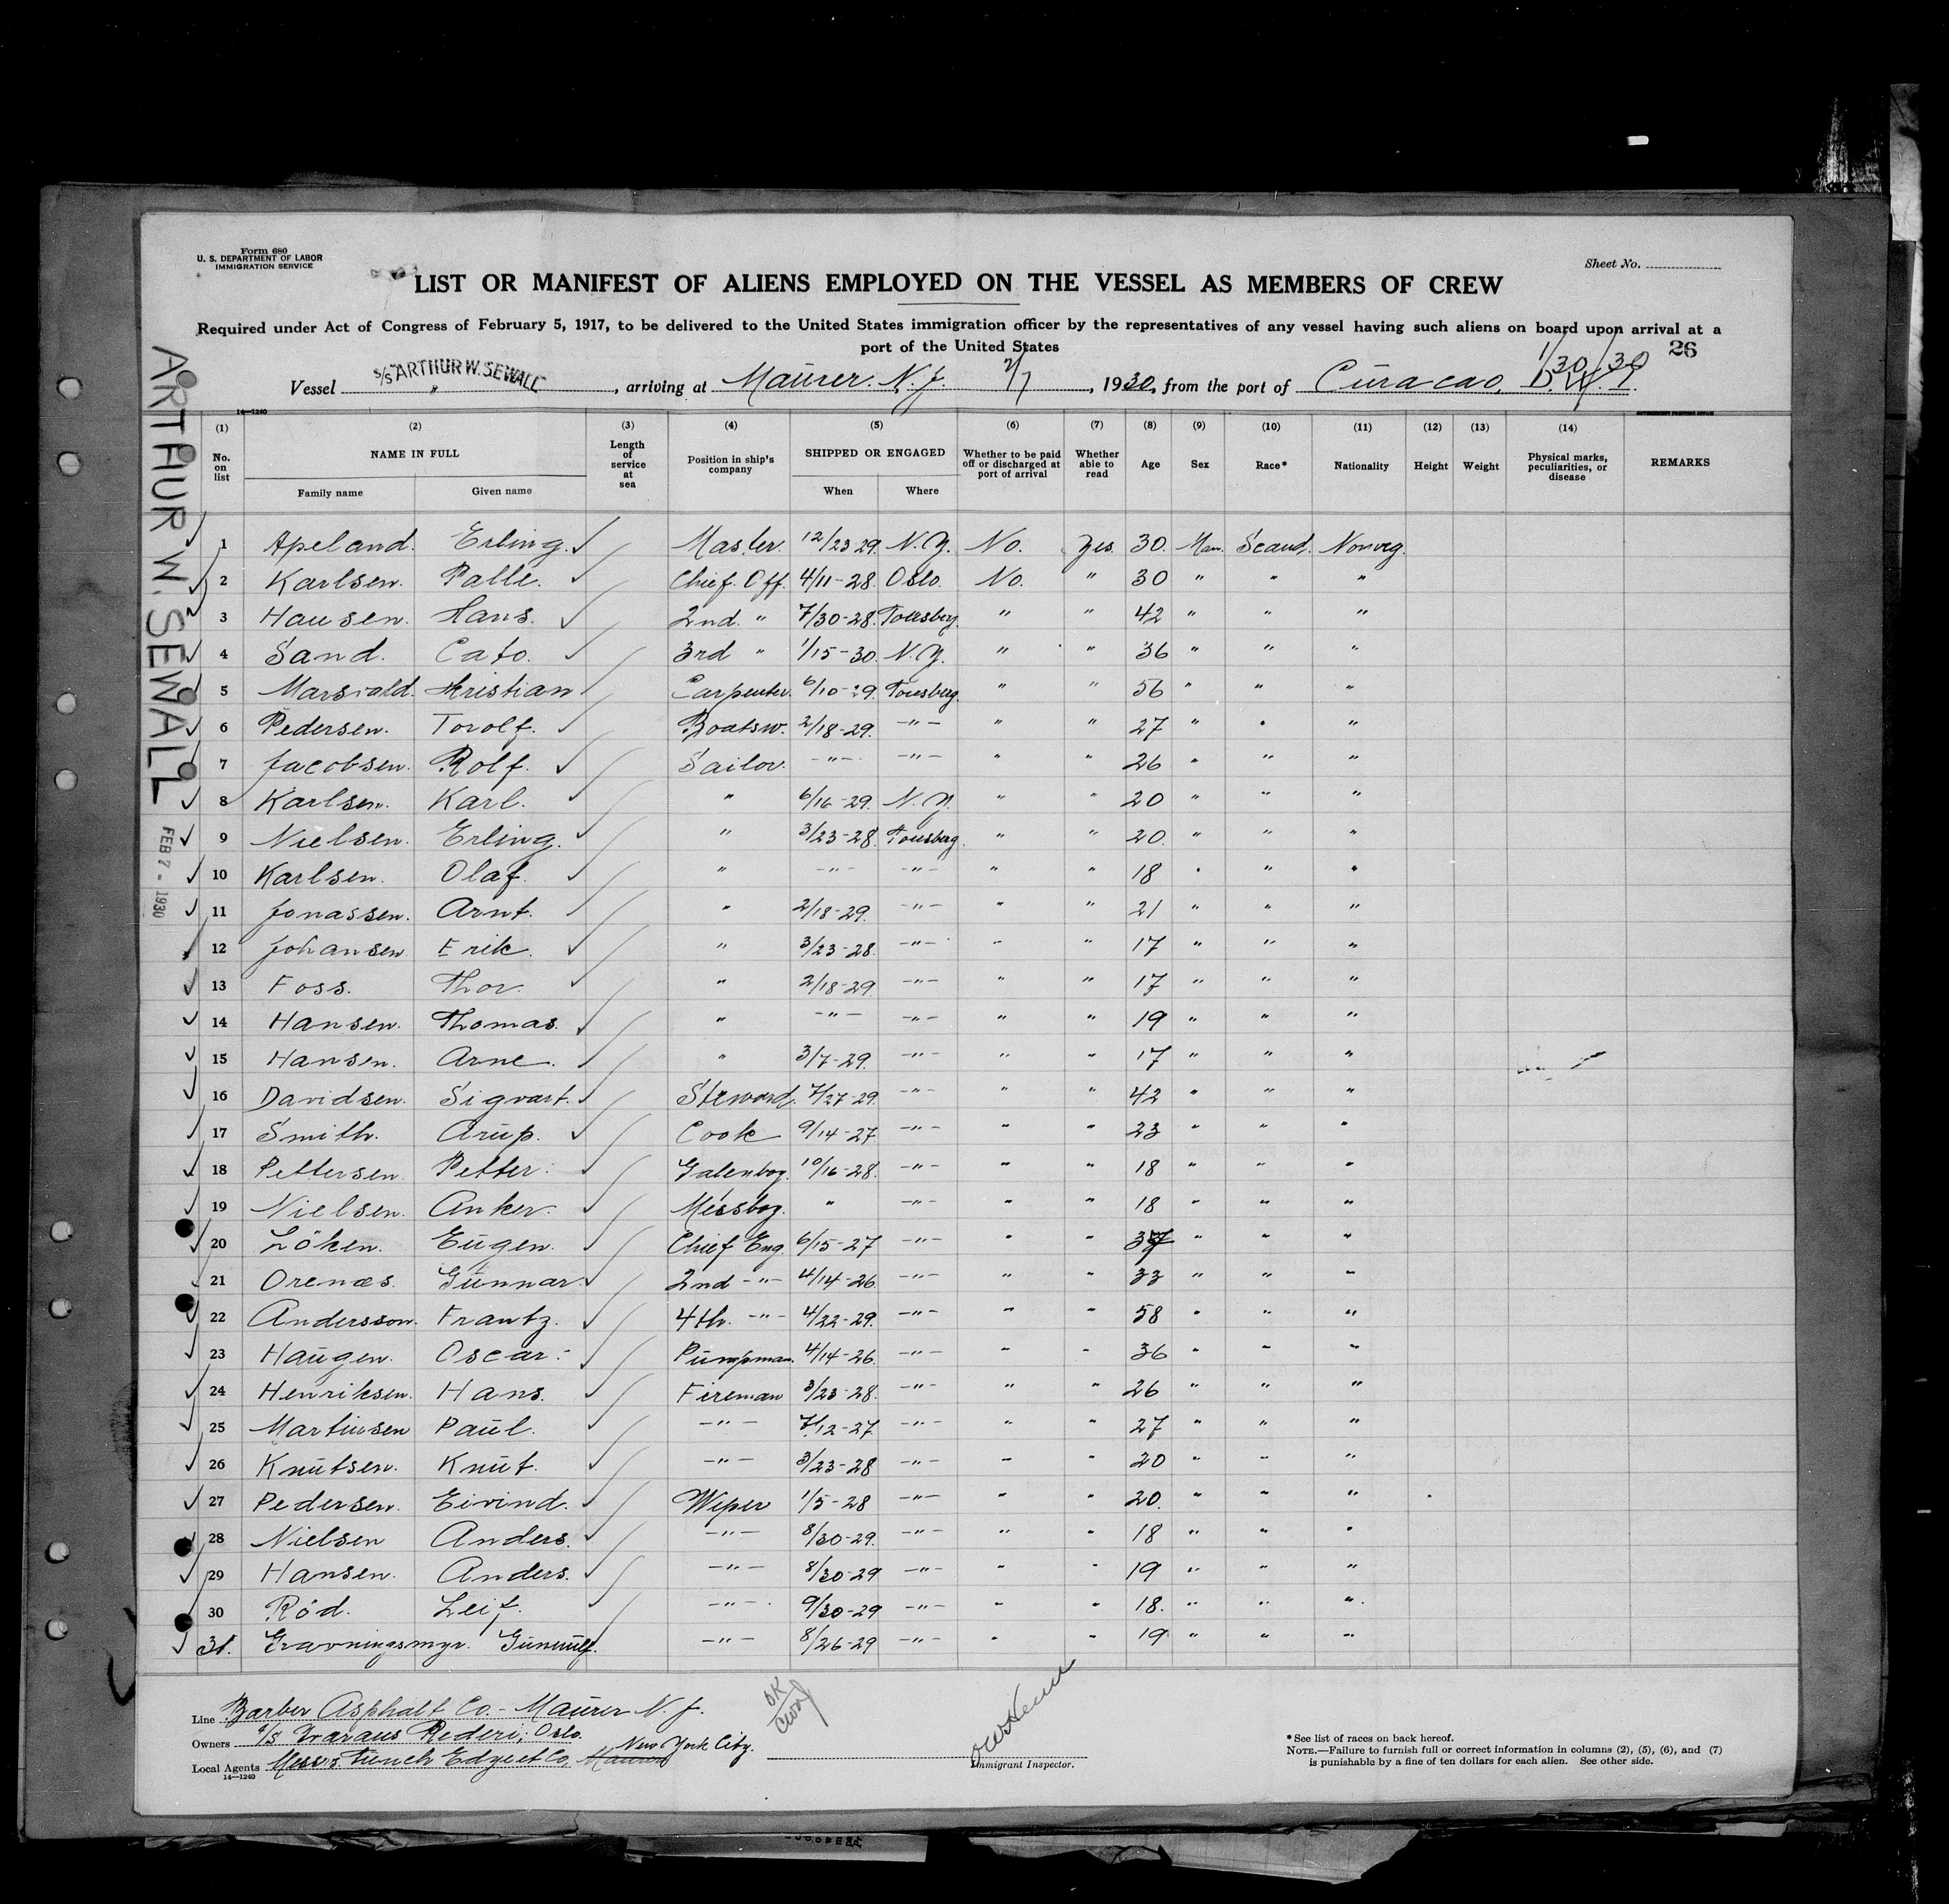 Form 680
U. S. DEPARTMENT OF LABOR
IMMIGRATION SERVICE
Sheet No.
LIST OR MANIFEST OF ALIENS EMPLOYED ON THE VESSEL AS MEMBERS OF CREW
Required under Act of Congress of February 5, 1917, to be delivered to the United States immigration officer by the representatives of any vessel having such aliens on board upon arrival at a
port of the United States
26
1/30/30
Vessel S/S ARTHUR W. SEWALL, arriving at Maurer. N. J. 2/7, 1930, from the port of Curacao, D.W.I.
14—1240
ARTHUR W. SEWALL
FEB 7 - 1930
(1) (2) (3) (4) (5) (6) (7) (8) (9) (10) (11) (12) (13) (14)
No. on list NAME IN FULL Length of service at sea Position in ship's company SHIPPED OR ENGAGED Whether to be paid off or discharged at port of arrival Whether able to read Age Sex Race* Nationality Height Weight Physical marks, peculiarities, or disease REMARKS
Family name Given name When Where
1 Apeland. Erling. Master. 12/23 29. N.Y. No. Yes. 30. Man. Scand. Norweg.
2 Karlsen. Palle. Chief. Off. 4/11-28. Oslo. No. " 30 " " "
3 Hausen. Hans. 2nd. " 7/30-28. Tonsberg. " " 42 " " "
4 Sand. Cato. 3rd " 1/15-30. N.Y. " " 36 " " "
5 Kristian Carpenter. 6/10-29. Tonsberg. " " 56 " " "
6 Pedersen. Torolf. Boatsw. 2/18-29. -"- " " 27 " " "
7 Jacobsen. Rolf. Sailor. -"- -"- " " 26 " " "
8 Karlsen. Karl. " 6/16-29. N.Y. " " 20 " " "
9 Nielsen. Erling. " 3/23-28. Tonsberg. " " 20. " " "
10 Karlsen. Olaf. " -"- -"- " " 18 " " "
11 Jonassen. Arnt. " 2/18-29. -"- " " 21 " " "
12 Johansen. Erik. " 3/23-28. -"- " " 17 " " "
13 Foss. Thor. " 2/18-29. -"- " " 17 " " "
14 Hansen. Thomas. " -"- -"- " " 19 " " "
15 Hansen. Arne. " 3/7-29. -"- " " 17 " " "
16 Davidsen. Sigvart. Steward. 7/27-29. -"- " " 42 " " "
17 Smith. Arup. Cook 9/14-27. -"- " " 23 " " "
18 Pettersen Petter. Galenboy. 10/16-28. -"- " " 18 " " "
19 Nielsen. Anker. Messboy. " -"- " " 18 " " "
20 Löken. Eugen. Chief Eng. 6/15-27 -"- " " 37 " " "
21 Orenæs. Gunnar. 2nd -"- 4/14-26. -"- " " 33 " " "
22 Andersson. Frantz. 4th. -"- 4/22-29. -"- " " 58 " " "
23 Haugen. Oscar. Pumpman. 4/14-26. -"- " " 36 " " "
24 Henriksen. Hans. Fireman 3/23-28. -"- " " 26 " " "
25 Martinsen Paul. -"- 7/12-27. -"- " " 27 " " "
26 Knutsen. Knut. -"- 3/23-28 -"- " " 20 " " "
27 Pedersen. Eivind. Wiper 1/5-28 -"- " " 20. " " "
28 Nielsen Anders. -"- 8/30-29. -"- " " 18 " " "
29 Hansen. Anders. -"- 8/30-29 -"- " " 19 " " "
30 Röd. Leif. -"- 9/30-29 -"- " " 18. " " "
31. Gravningsmyr. Gunnulf. -"- 8/26-29 -"- " " 19 " " "
Line Barber Asphalt Co. - Maurer N. J.
OK
Owners Rederi, Oslo.
New York City.
Local Agents Messrs. Funch Edye & Co,
14—1240
Immigrant Inspector.
*See list of races on back hereof.
NOTE.—Failure to furnish full or correct information in columns (2), (5), (6), and (7)
is punishable by a fine of ten dollars for each alien. See other side.